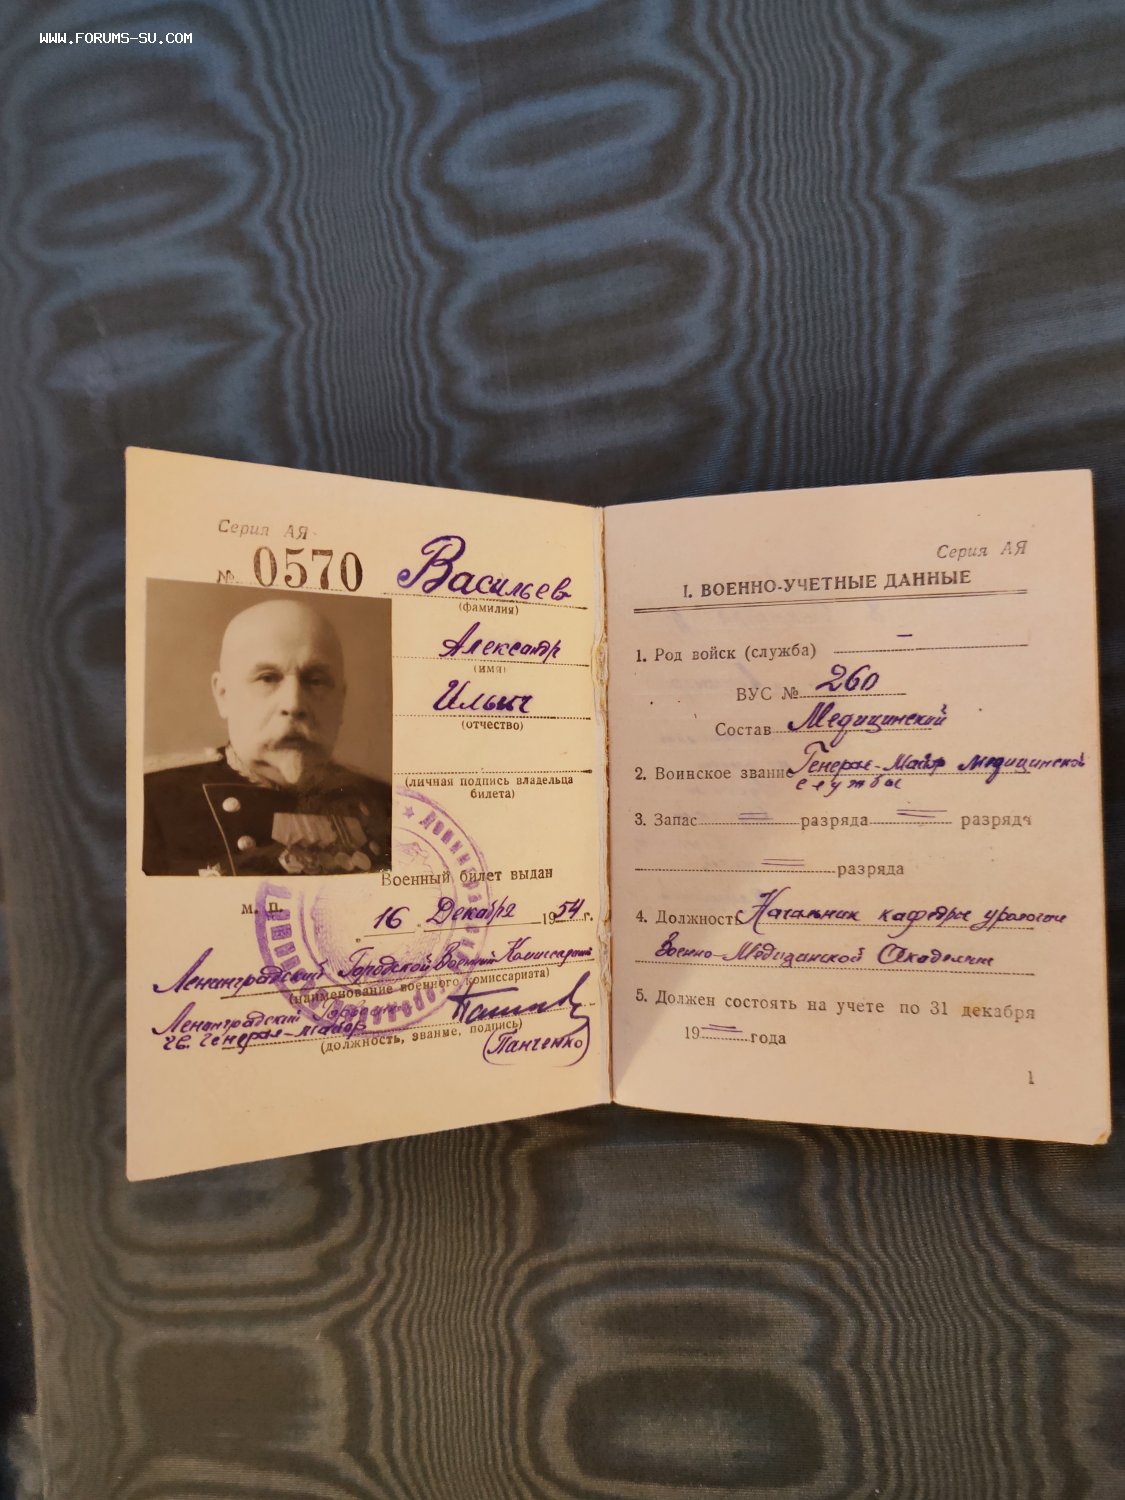 WWW.FORUMS-SU.COM
Серия АЯ
№ 0570
Васильев
(фамилия)
Александр
(имя)
Ильич
(отчество)
(личная подпись владельца
билета)
Военный билет выдан
М. П.
"16" Декабря 1954 г.
Ленинградский Городской Военный Комиссариат
(наименование военного комиссариата)
Ленинградский
генерал-майор
(должность, звание, подпись)
(Панченко)
Серия АЯ
I. ВОЕННО-УЧЕТНЫЕ ДАННЫЕ
1. Род войск (служба) —
ВУС № 260
Состав Медицинский
2. Воинское звание Генерал-Майор медицинской
службы
3. Запас = разряда = разряда
= разряда
4. Должность Начальник кафедры урологии
Военно-Медицинской Академии
5. Должен состоять на учете по 31 декабря
19 = года
1